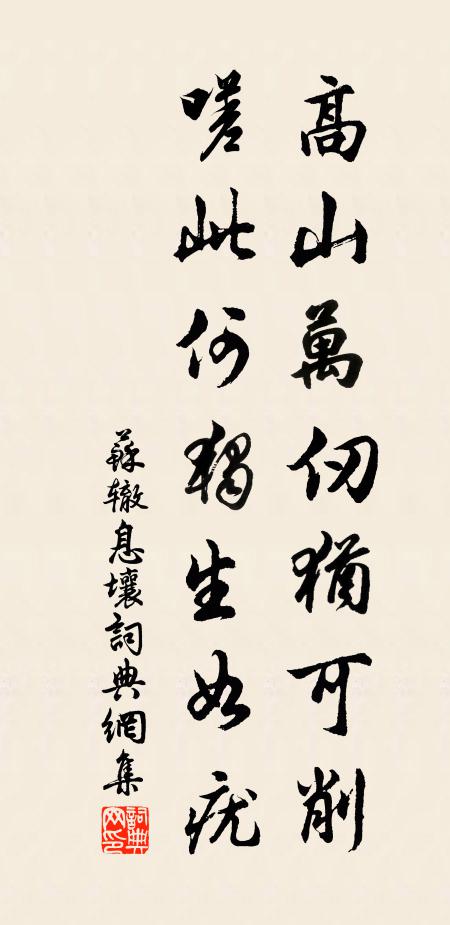 高山萬仞猶可削
嗟此何獨生如疣
蘇辙息壤詞典網集
詞典網印